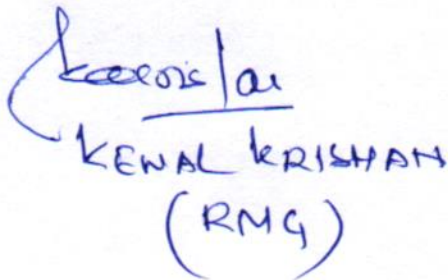 KEWAL KRISHAN
(RMG)